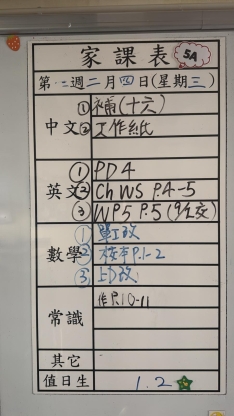 家課表 5A
第二週二月四日(星期三)
中文
①補(十六)
②工作紙
英文
①PD4
②Ch WS P.4-5
③WP5 P.5 (9/2交)
數學
①單工改
②校本P.1-2
③上改
常識
作P.10-11
其它
值日生
1.2